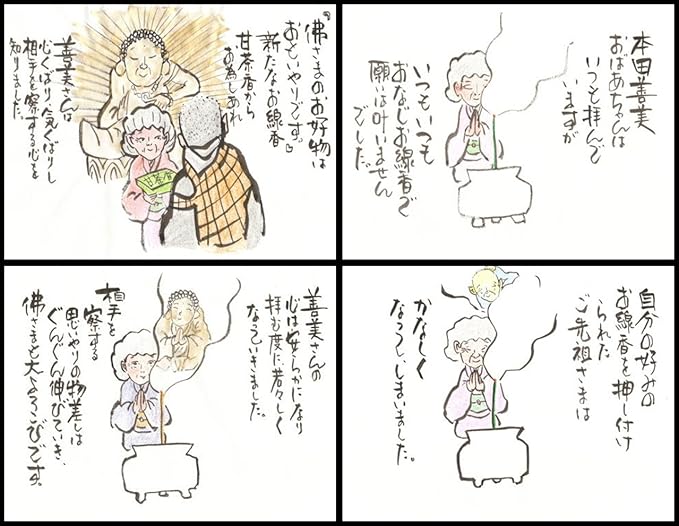 本田善美
おばあちゃんは
いつも拝んで
いますが
いつもいつも
おなじお線香で
願いは叶いません
でした。
自分の好みの
お線香を押し付け
られた
ご先祖さまは
かなしく
なってしまいました。
『佛さまのお好物は
おもいやりです。』
新たなお線香
甘茶香から
お為しあれ
甘茶香
善美さんは
心くばり気くばりし
相手を察する心を
知りました。
善美さんの
心は安らかになり
拝む度に若々しく
なっていきました。
相手を
察する
思いやりの物差しは
ぐんぐん伸びていき、
佛さまも大よろこびです。